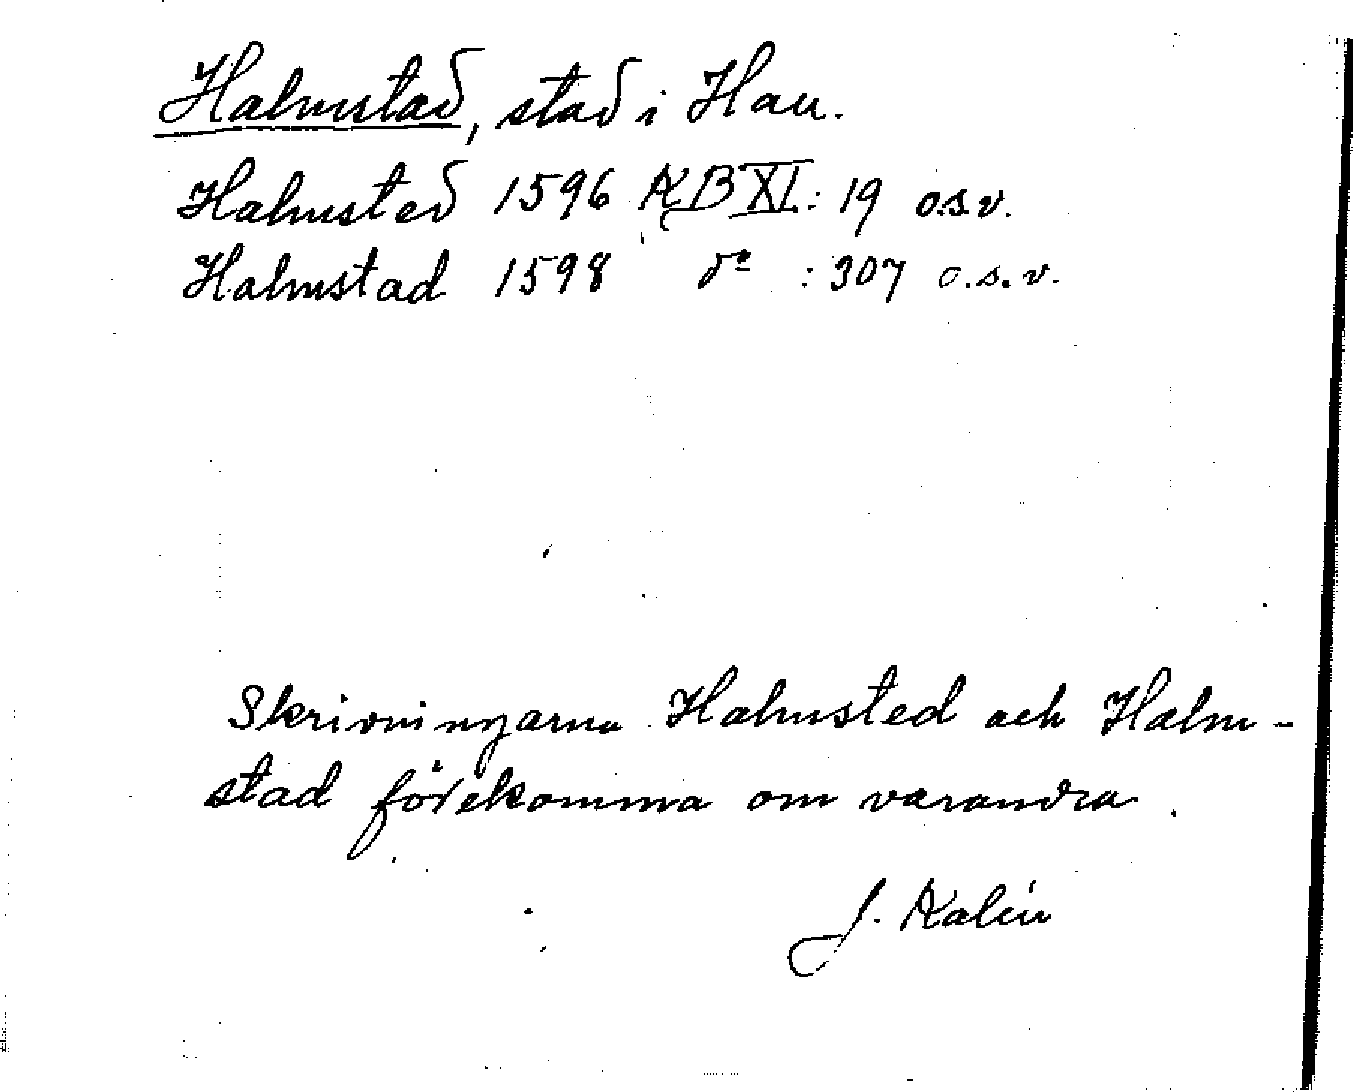 Halmstad, stad i Hall.
Halmsted 1596 KB XI: 19 o.s.v.
Halmstad 1598 do : 307 o.s.v.
Skrivningarna Halmsted och Halm-
stad förekomma om varandra.
J. Kalén